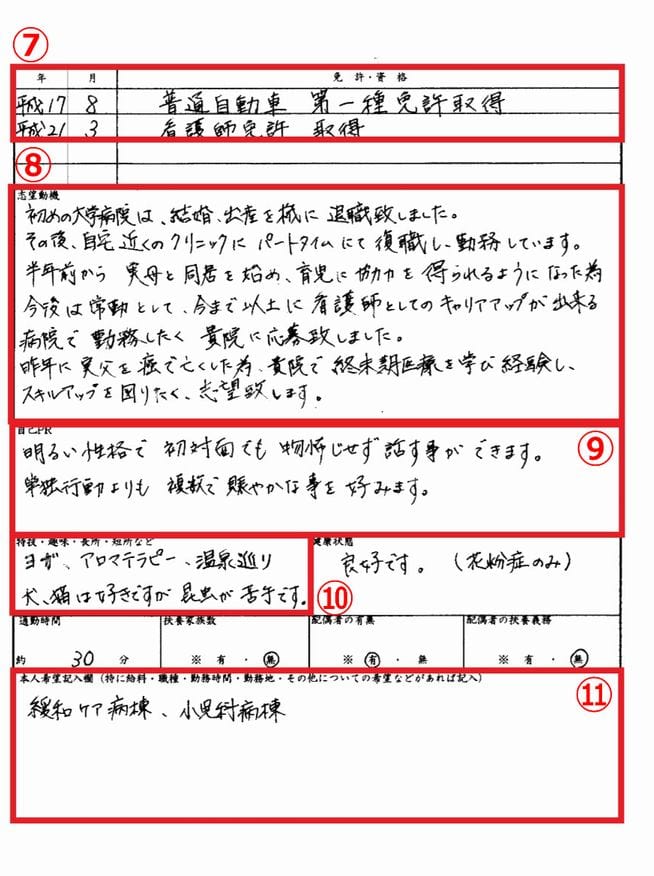 ⑦
年 月 免許・資格
平成17 8 普通自動車 第一種免許取得
平成21 3 看護師免許 取得
⑧
志望動機
初めの大学病院は、結婚、出産を機に 退職致しました。
その後、自宅近くのクリニックに パートタイムにて 復職し、勤務しています。
半年前から 実母と同居を始め、育児に協力を得られるようになった為
今後は常勤として、今まで以上に看護師としてのキャリアアップが出来る
病院で 勤務したく 貴院に応募致しました。
昨年に実父を癌で亡くした為、貴院で 終末期医療を学び経験し、
スキルアップを図りたく、志望致します。
自己PR
⑨
明るい性格で 初対面でも 物怖じせず 話す事ができます。
単独行動よりも 複数で賑やかな事を好みます。
特技・趣味・長所・短所など
ヨガ、アロマテラピー、温泉巡り
犬、猫は好きですが 昆虫が苦手です。
健康状態
良好です。(花粉症のみ)
⑩
通勤時間 扶養家族数 配偶者の有無 配偶者の扶養義務
約 30 分 ※ 有・無 ※ 有・無 ※ 有・無
本人希望記入欄(特に給料・職種・勤務時間・勤務地・その他についての希望などがあれば記入)
⑪
緩和ケア病棟、小児科病棟